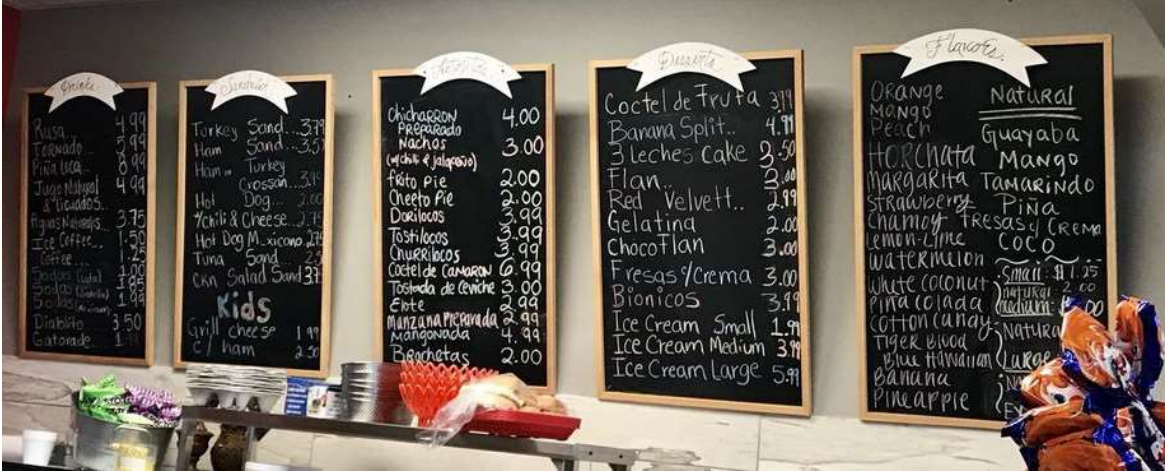 Drinks
Rusa 4.99
Tornado... 5.99
Piña Loca... 8.99
Jugo Natural 4.99
& licuados..
Aguas Naturales.. 3.75
Ice Coffee... 1.50
Coffee.... 1.25
Sodas (lata) 1.00
Sodas 1.95
Sodas 1.99
Diablito 3.50
Gatorade
Sandwich
Turkey Sand...3.79
Ham Sand...3.59
Ham or Turkey
Crossan...
Hot Dog... 2.00
c/chili & Cheese..2.75
Hot Dog Mexicano 2.75
Tuna Sand
Ckn Salad Sand
Kids
Grill cheese 1.99
c/ ham 2.50
Antojitos
Chicharron 4.00
Preparado
Nachos 3.00
(w/chili & jalapeño)
frito Pie 2.00
Cheeto Pie 2.00
Dorilocos 3.99
Tostilocos 3.99
Churrilocos 3.99
Coctel de Camaron 6.99
Tostada de Ceviche 3.00
Elote 2.99
Manzana Preparada 2.99
Mangonada 4.99
Brochetas 2.00
Desserts
Coctel de Fruta 3.99
Banana Split.. 4.99
3 leches Cake 3.50
Flan.. 3.00
Red Velvett.. 2.99
Gelatina 2.00
Chocoflan 3.00
Fresas c/Crema 3.00
Bionicos 3.99
Ice Cream Small 1.99
Ice Cream Medium 3.99
Ice Cream Large 5.99
Flavors.
Orange
Mango
Peach
Horchata
Margarita
Strawberry
Chamoy
Lemon-Lime
Watermelon
White coconut
Piña colada
Cotton Candy
Tiger Blood
Blue Hawaiian
Banana
Pineapple
Natural
Guayaba
Mango
Tamarindo
Piña
Fresas y Crema
Coco
Small: $1.25
natural 2.00
medium:
Natural
Large